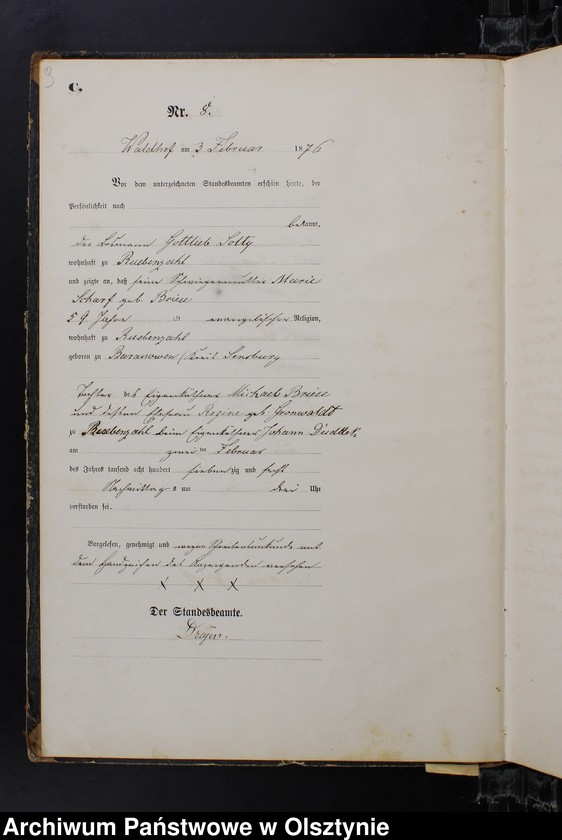 9
C.
Nr. 8.
Waldhof am 3 Februar 1876
Vor dem unterzeichneten Standesbeamten erschien heute, der
Persönlichkeit nach
bekannt,
der Losmann Gottlieb Solty
wohnhaft zu Rudenzahl
und zeigte an, daß seine Schwiegermutter Marie
Scharf geb. Briese
59 Jahre alt evangelischer Religion,
wohnhaft zu Rudenzahl
geboren zu Baranowen (Kreis Sensburg
Tochter des Eigenkäthners Michael Briese
und dessen Ehefrau Regine geb. Gronwaldt
zu Rudenzahl beim Eigenkäthner Johann
am zwei ten Februar
des Jahres tausend acht hundert sieben zig und sechs
Nachmittags um drei Uhr
verstorben sei.
Vorgelesen, genehmigt und wegen Schreibensunkunde mit
dem Handzeichen des Anzeigenden versehen
X X X
Der Standesbeamte.
Archiwum Państwowe w Olsztynie